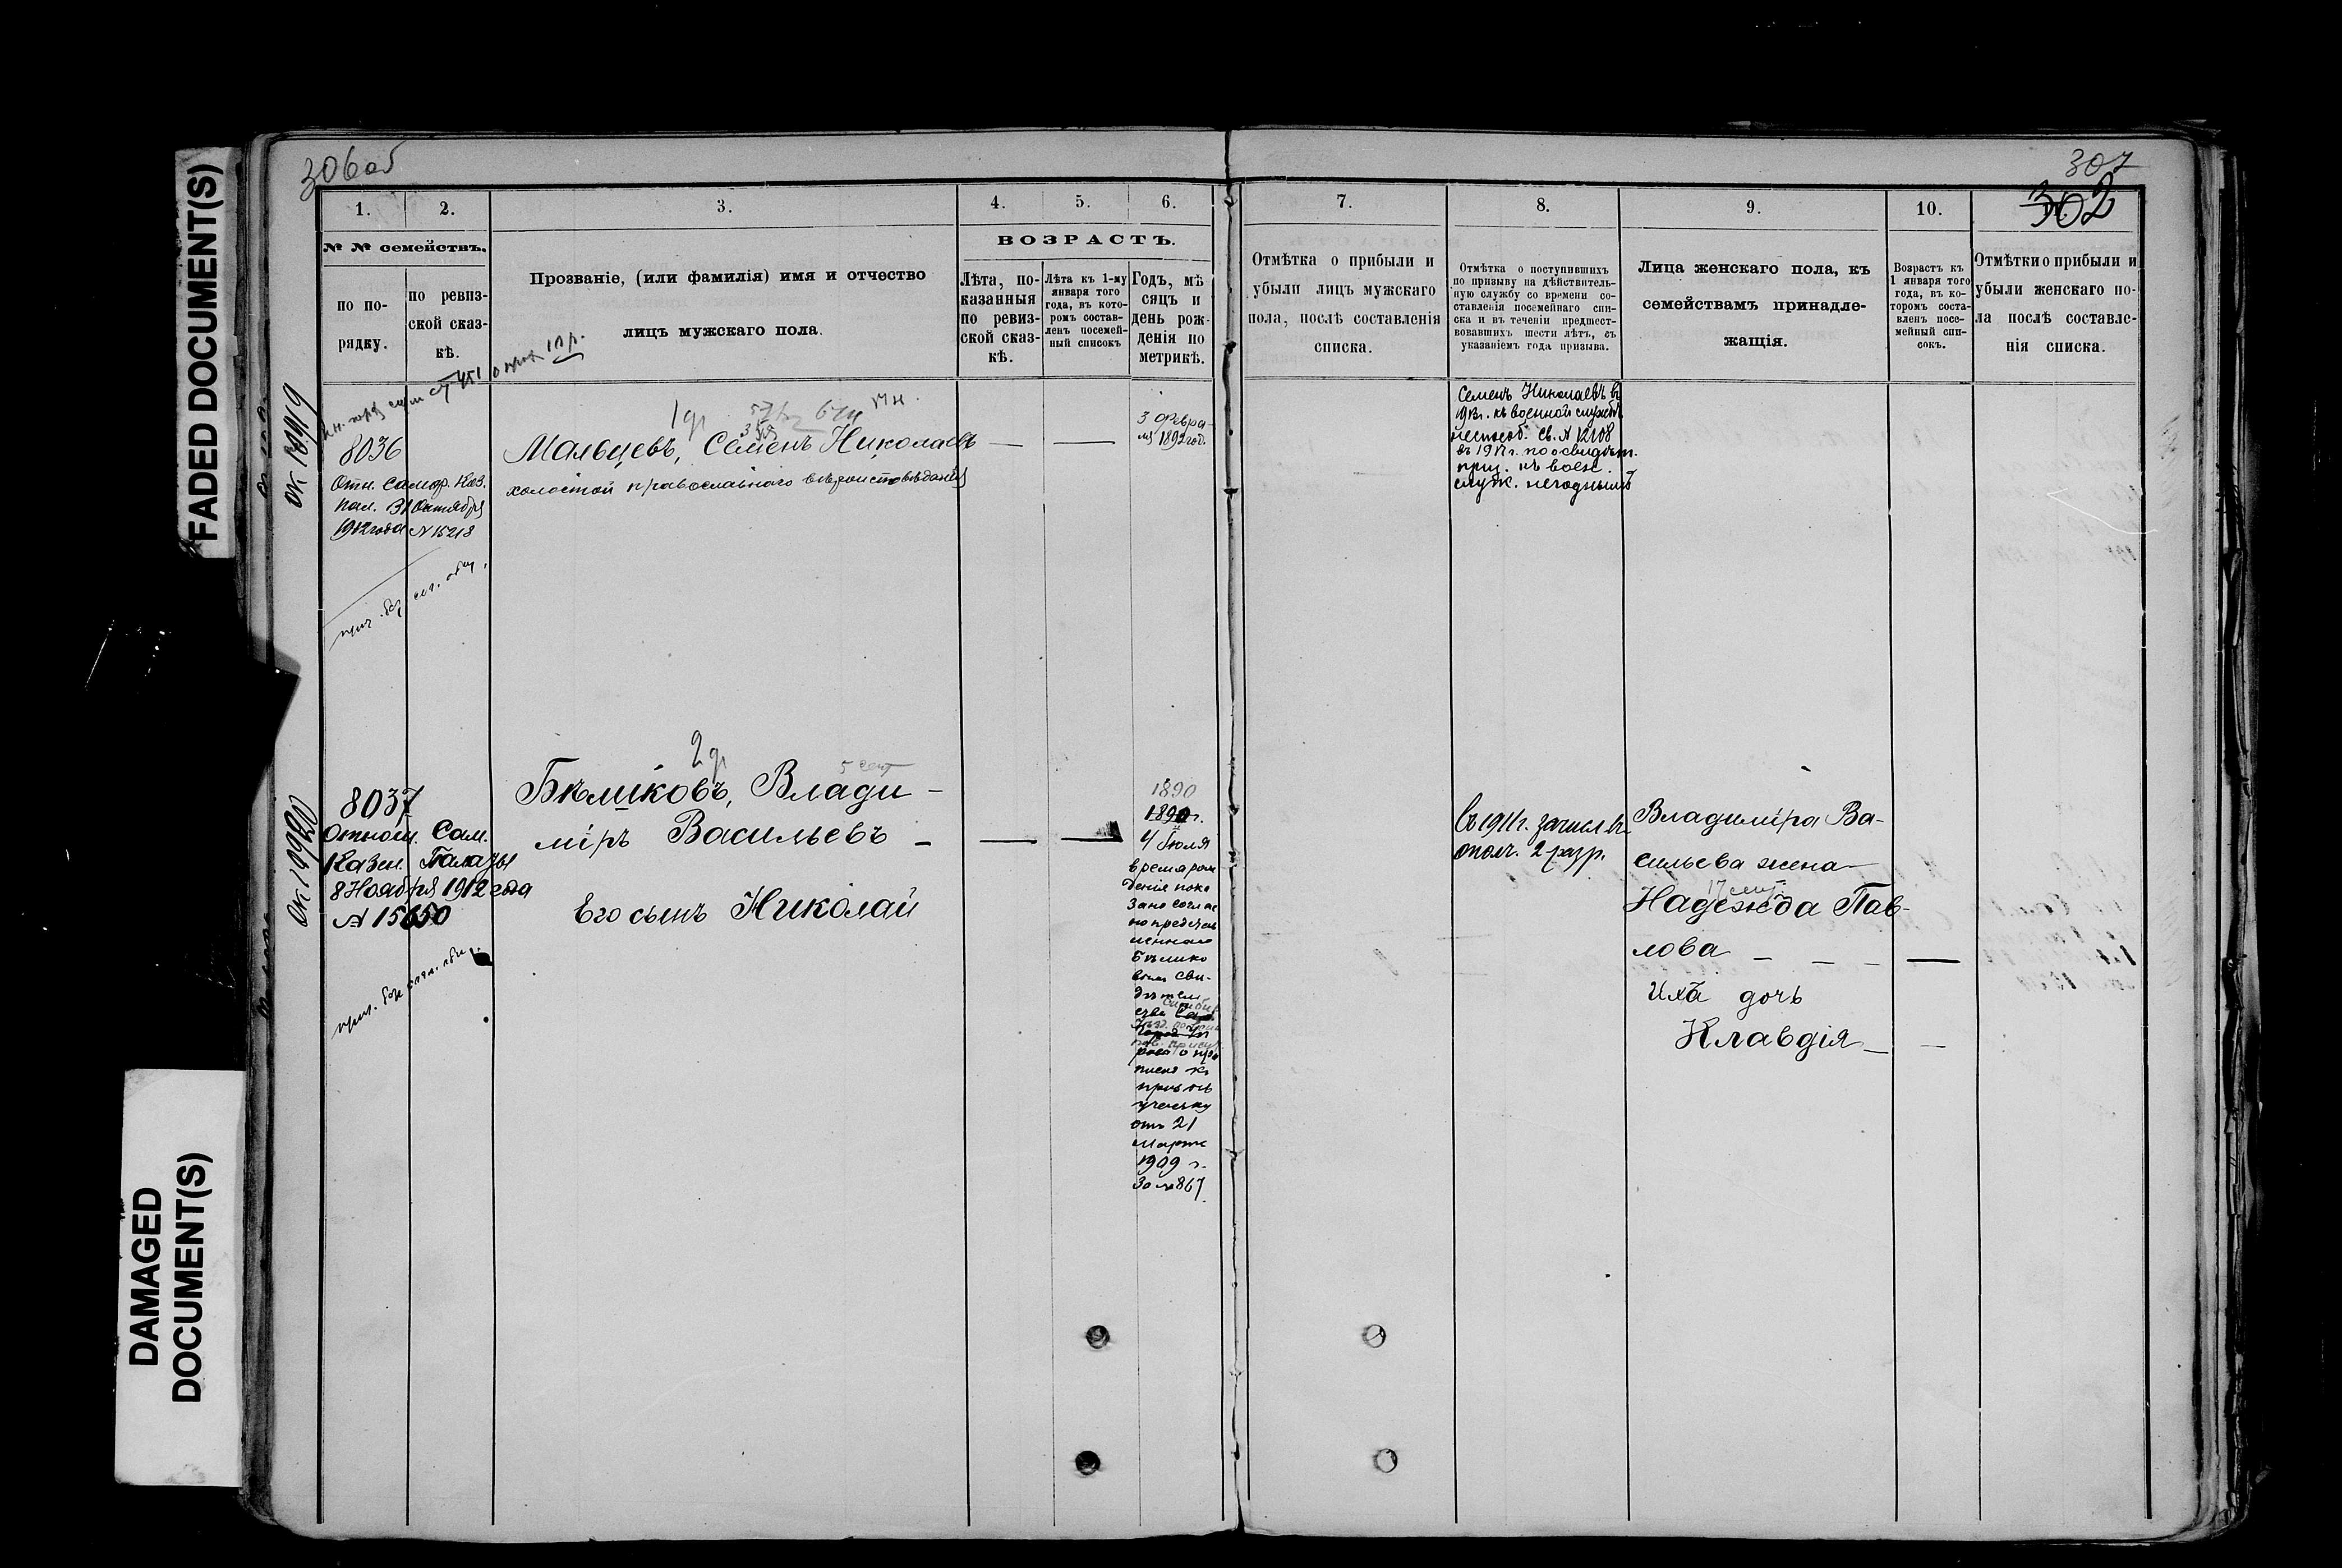 FADED DOCUMENT(S)
DAMAGED
DOCUMENT(S)
306об
307
302
1.
2.
3.
4.
5.
6.
№ № семействъ.
по по-
рядку.
по ревиз-
ской сказ-
кѣ.
Прозваніе, (или фамилія) имя и отчество
лицъ мужскаго пола.
ВОЗРАСТЪ.
Лѣта, по-
казанныя
по ревиз-
ской сказ-
кѣ.
Лѣта къ 1-му
января того
года, въ кото-
ромъ состав-
ленъ посемей-
ный списокъ
Годъ, мѣ
сяцъ и
день рож-
денія по
метрикѣ.
7.
8.
9.
10.
Отмѣтка о прибыли и
убыли лицъ мужскаго
пола, послѣ составленія
списка.
Отмѣтка о поступившихъ
по призыву на дѣйствитель-
ную службу со времени со-
ставленія посемейнаго спи-
ска и въ теченіи предшест-
вовавшихъ шести лѣтъ, съ
указаніемъ года призыва.
Лица женскаго пола, къ
семействамъ принадле-
жащія.
Возрастъ къ
1 января того
года, въ ко-
торомъ соста-
вленъ посе-
мейный спи-
сокъ.
Отмѣтки о прибыли и
убыли женскаго по-
ла послѣ составле-
нія списка.
ок 19919
8036
Отн. Самар. Каз.
Пал. 31 Октября
1912 года № 15218
1 д
Мальцевъ, Семенъ Николаевъ
холостой православнаго вѣроисповѣданія
3 Февра-
ля 1892 год.
Семенъ Николаевъ въ
1913 г. къ военной службѣ
неспособ. Св. № 12108
въ 1917 г. по освидѣт.
приз. къ воен.
служ. негоднымъ
ок 19920
8037
Отнош. Сам.
Казен. Палаты
8 Ноября 1912 года
№ 15650
2 д
5 сент
Бѣликовъ, Влади-
міръ Васильевъ
Его сынъ Николай
1890
1890 г.
4 Іюля
время рож
денія пока
зано соглас
но представ
леннаго
Бѣлико
вымъ сви-
дѣтель
ства
о при
писке къ
призыв
участку
отъ 21
Марта
1909 г.
за № 867.
въ 1911 г. зачисл. въ
ополч. 2 разр.
Владиміра Ва-
сильева жена
17 сент
Надежда Пав-
лова
Ихъ дочь
Клавдія